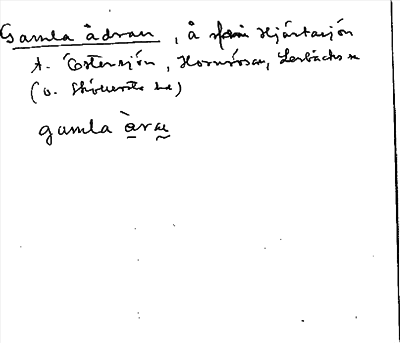 Gamla ådran, å från Hjärtasjön
t. Östersjön, Hornsösan, Lerbäcks sn
(o. Skövests sn)
gamla åræ